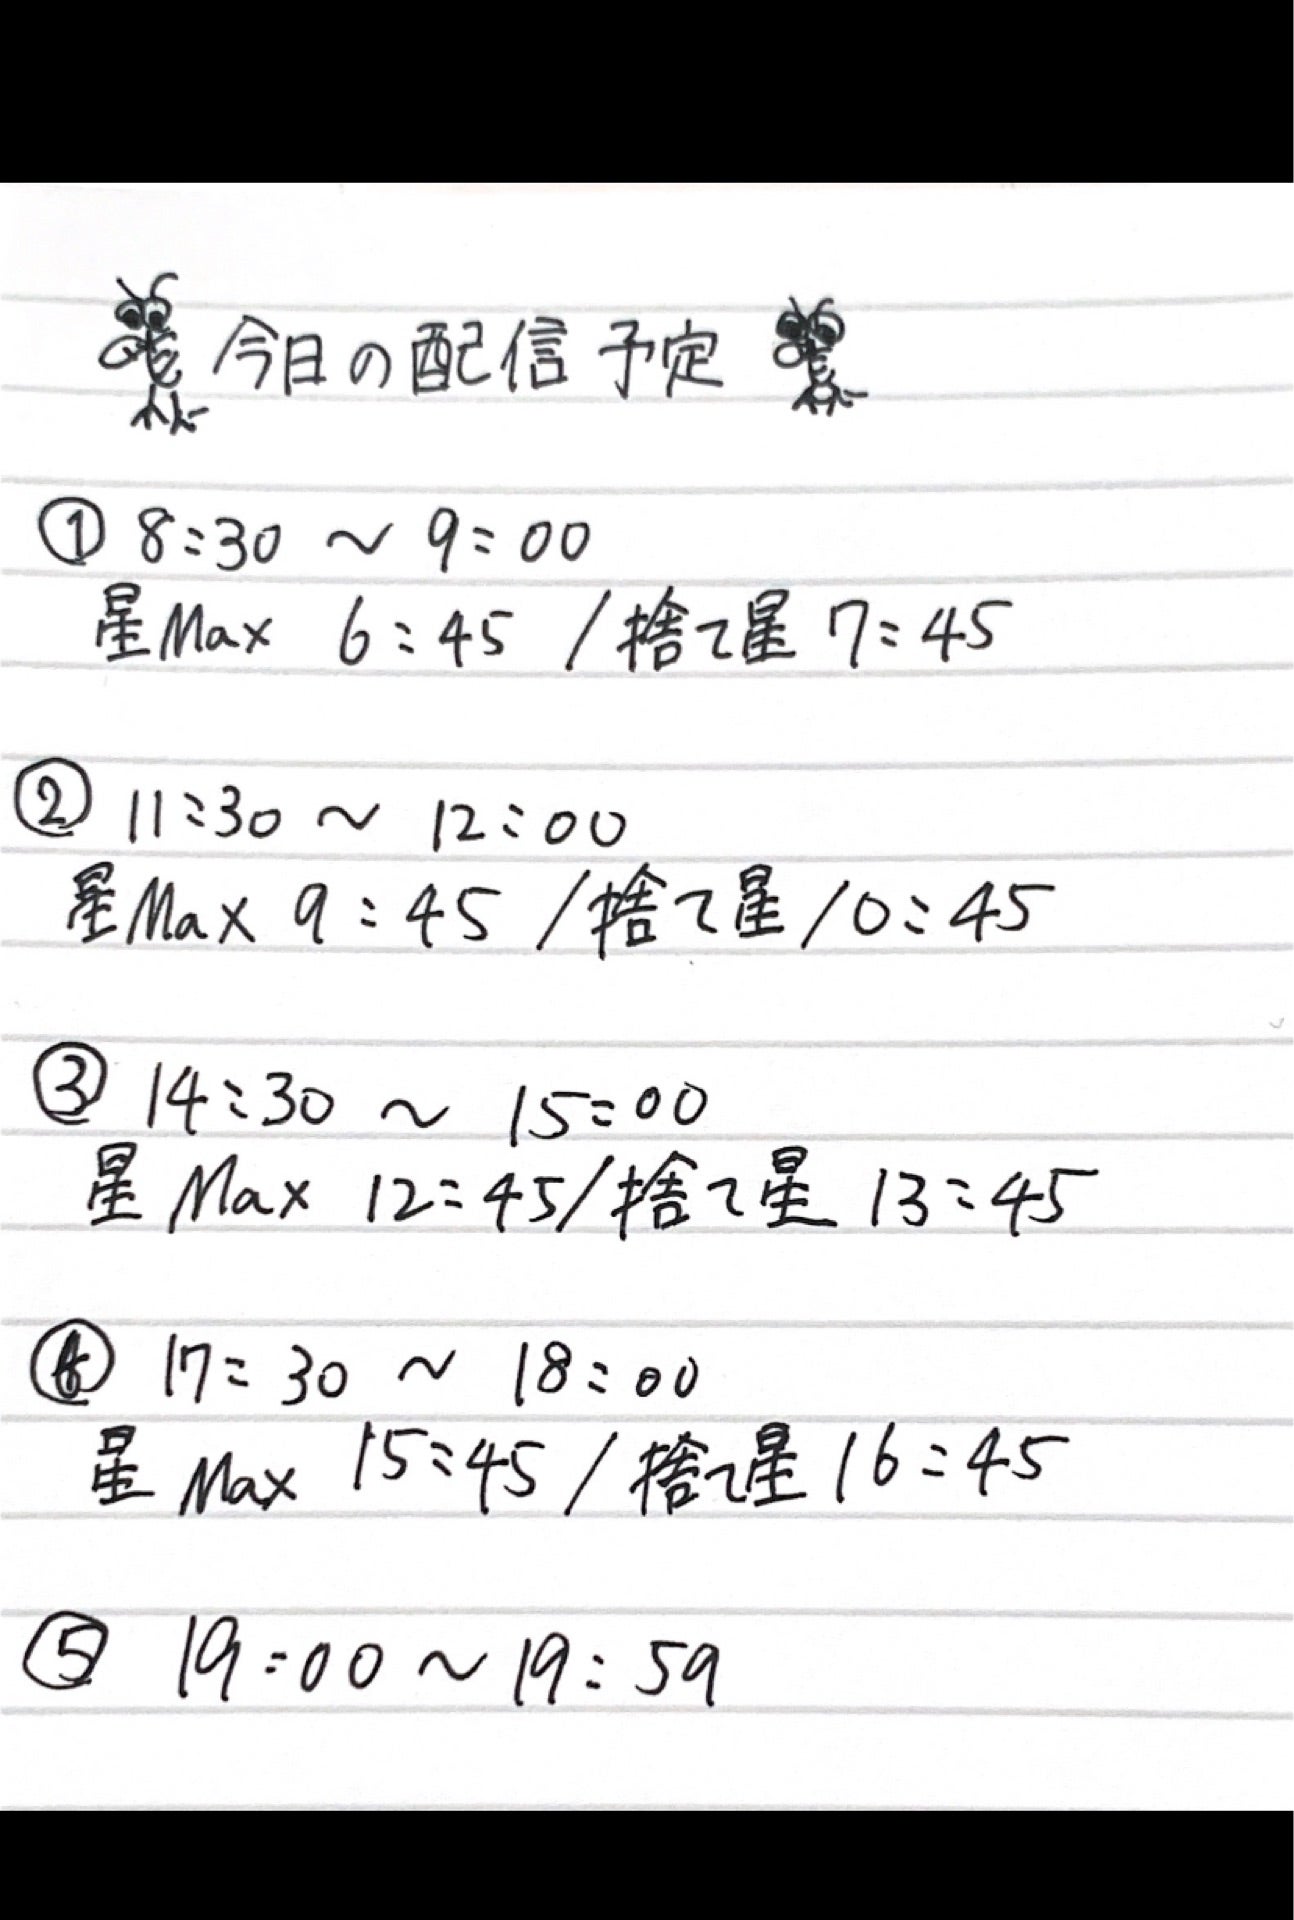 今日の配信予定
① 8:30 〜 9:00
星Max 6:45 / 捨て星 7:45
② 11:30 〜 12:00
星Max 9:45 / 捨て星 10:45
③ 14:30 〜 15:00
星Max 12:45 / 捨て星 13:45
④ 17:30 〜 18:00
星Max 15:45 / 捨て星 16:45
⑤ 19:00 〜 19:59